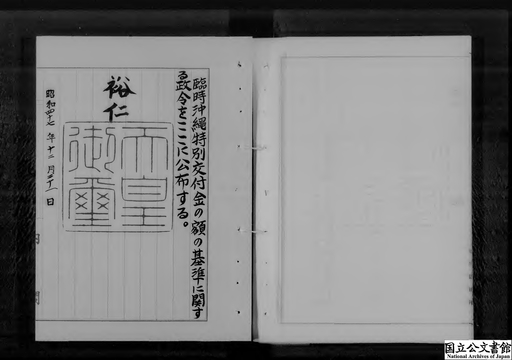 臨時沖縄特別交付金の額の基準に関す
る政令をここに公布する。
裕仁
天皇
御璽
昭和四十七年十二月
日
内閣
国立公文書館
National Archives of Japan